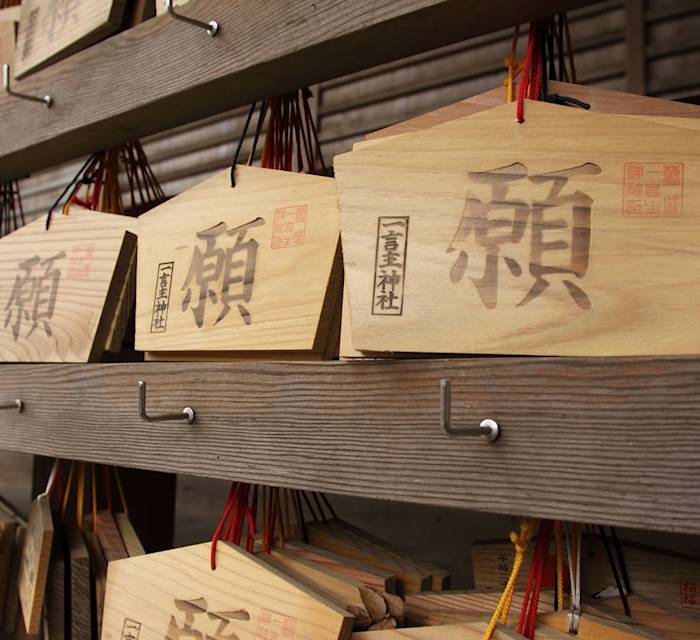 願
一言主神社
願
一言主神社
願
願